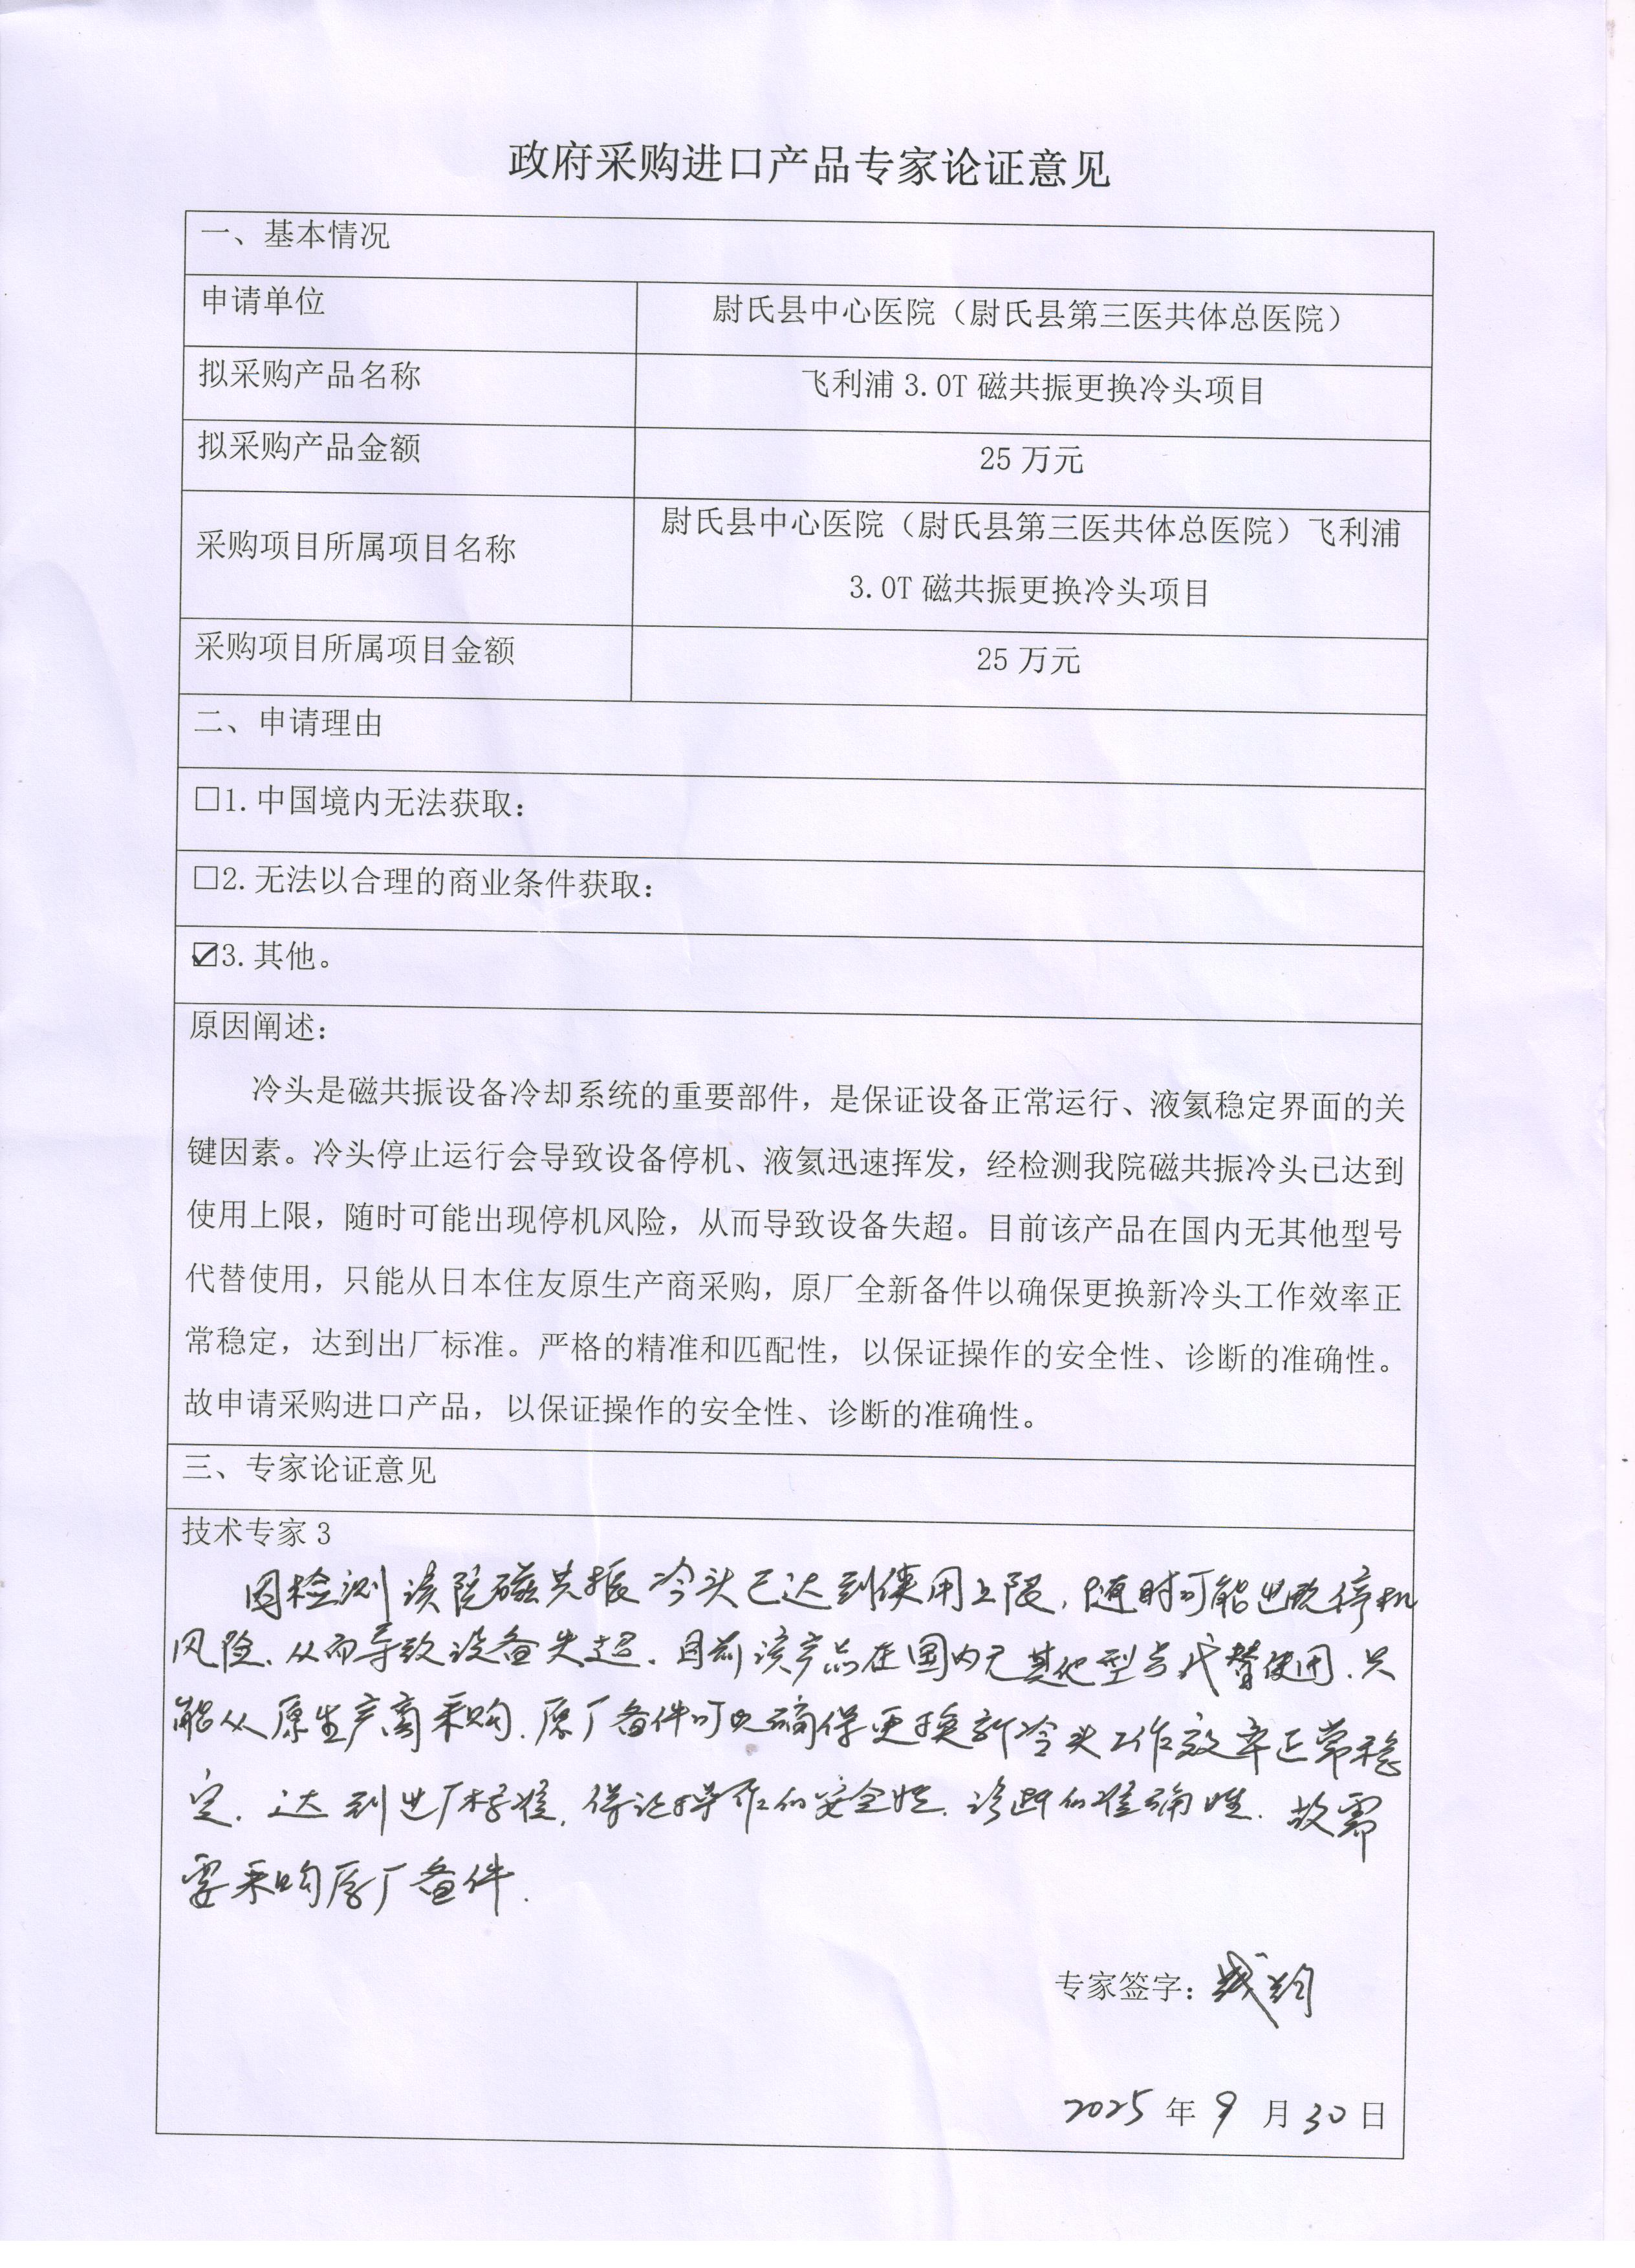 政府采购进口产品专家论证意见
一、基本情况
申请单位
尉氏县中心医院（尉氏县第三医共体总医院）
拟采购产品名称
飞利浦 3.0T 磁共振更换冷头项目
拟采购产品金额
25 万元
采购项目所属项目名称
尉氏县中心医院（尉氏县第三医共体总医院）飞利浦
3.0T 磁共振更换冷头项目
采购项目所属项目金额
25 万元
二、申请理由
☐1.中国境内无法获取：
☐2.无法以合理的商业条件获取：
☑3.其他。
原因阐述：
冷头是磁共振设备冷却系统的重要部件，是保证设备正常运行、液氦稳定界面的关
键因素。冷头停止运行会导致设备停机、液氦迅速挥发，经检测我院磁共振冷头已达到
使用上限，随时可能出现停机风险，从而导致设备失超。目前该产品在国内无其他型号
代替使用，只能从日本住友原生产商采购，原厂全新备件以确保更换新冷头工作效率正
常稳定，达到出厂标准。严格的精准和匹配性，以保证操作的安全性、诊断的准确性。
故申请采购进口产品，以保证操作的安全性、诊断的准确性。
三、专家论证意见
技术专家 3
因检测该院磁共振冷头已达到使用上限，随时可能出现停机
风险，从而导致设备失超。目前该产品在国内无其他型号代替使用，只
能从原生产商采购，原厂备件可以确保更换新冷头工作效率正常稳
定，达到出厂标准，保证操作的安全性、诊断的准确性。故需
要采购原厂备件.
专家签字：
2025 年 9 月 30 日